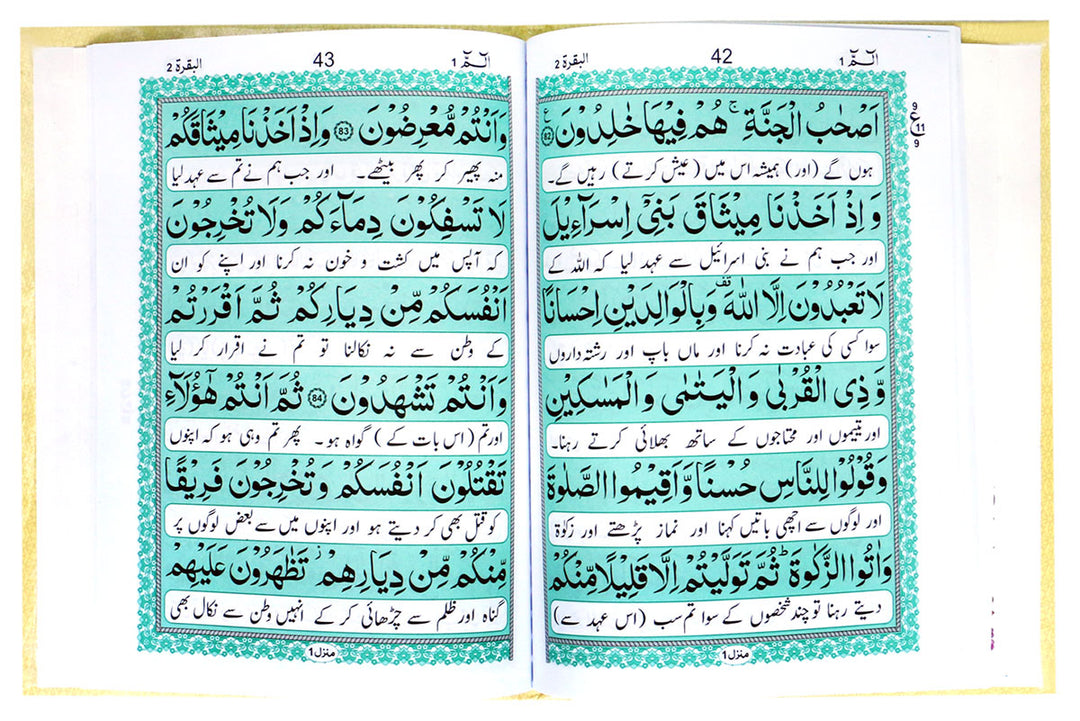 الٓمّٓ 1
42
البقرة 2
اَصْحٰبُ الْجَنَّةِ ۚ هُمْ فِیْهَا خٰلِدُوْنَ 82 ع
ہوں گے (اور) ہمیشہ اس میں (عیش کرتے) رہیں گے۔
وَ اِذْ اَخَذْنَا مِیْثَاقَ بَنِیْۤ اِسْرَآءِیْلَ
اور جب ہم نے بنی اسرائیل سے عہد لیا کہ اللہ کے
لَا تَعْبُدُوْنَ اِلَّا اللّٰهَ وَبِالْوَالِدَیْنِ اِحْسَانًا
سوا کسی کی عبادت نہ کرنا اور ماں باپ اور رشتہ داروں
وَّ ذِی الْقُرْبٰی وَ الْیَتٰمٰی وَ الْمَسٰكِیْنِ
اور یتیموں اور محتاجوں کے ساتھ بھلائی کرتے رہنا۔
وَ قُوْلُوْا لِلنَّاسِ حُسْنًا وَّ اَقِیْمُوا الصَّلٰوةَ
اور لوگوں سے اچھی باتیں کہنا اور نماز پڑھتے اور زکوٰۃ
وَ اٰتُوا الزَّكٰوةَ ؕ ثُمَّ تَوَلَّیْتُمْ اِلَّا قَلِیْلًا مِّنْكُمْ
دیتے رہنا تو چند شخصوں کے سوا تم سب (اس عہد سے)
منزل 1
9
ع 11
9
الٓمّٓ 1
43
البقرة 2
وَ اَنْتُمْ مُّعْرِضُوْنَ 83 وَ اِذْ اَخَذْنَا مِیْثَاقَكُمْ
منہ پھیر کر پھر بیٹھے۔ اور جب ہم نے تم سے عہد لیا
لَا تَسْفِكُوْنَ دِمَآءَكُمْ وَ لَا تُخْرِجُوْنَ
کہ آپس میں کشت و خون نہ کرنا اور اپنے کو ان
اَنْفُسَكُمْ مِّنْ دِیَارِكُمْ ثُمَّ اَقْرَرْتُمْ
کے وطن سے نہ نکالنا تو تم نے اقرار کر لیا
وَ اَنْتُمْ تَشْهَدُوْنَ 84 ثُمَّ اَنْتُمْ هٰۤؤُلَآءِ
اور تم (اس بات کے) گواہ ہو۔ پھر تم وہی ہو کہ اپنوں
تَقْتُلُوْنَ اَنْفُسَكُمْ وَ تُخْرِجُوْنَ فَرِیْقًا
کو قتل بھی کر دیتے ہو اور اپنوں میں سے بعض لوگوں پر
مِّنْكُمْ مِّنْ دِیَارِهِمْ ؗ تَظٰهَرُوْنَ عَلَیْهِمْ
گناہ اور ظلم سے چڑھائی کر کے انہیں وطن سے نکال بھی
منزل 1